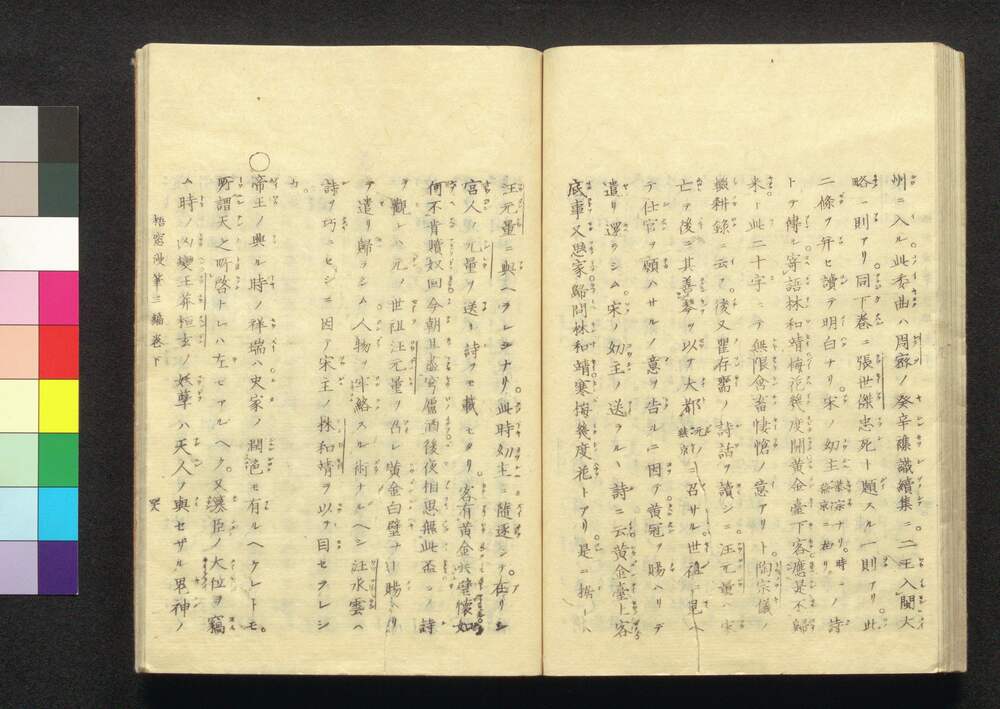 州ニ入ル此委曲ハ周密ノ癸辛雜識續集ニ二王入閩大
略一則アリ同下卷ニ張世傑忠死ト題スル一則アリ此
二條ヲ弁セ讀テ明白ナリ宋ノ幼主恭宗ナリ時ニ燕京ニ在リノ詩
トテ傳ル寄語林和靖梅花幾度開黃金臺下客應是不歸
來ト此二十字ニテ無限含畜悽愴ノ意アリト陶宗儀ノ
輟耕錄ニ云後又瞿存齋ノ詩話ヲ讀シニ汪元量ハ宋
亡テ後ニ其善琴ヲ以テ大都元ノ京ヨリ召サル世祖ニ見ヘ
テ仕官ヲ願ハサルノ意ヲ告ルニ因テ黃冠ヲ賜ハリテ
遣リ還ラシム宋ノ幼主ノ送ラルヽ詩ニ云黃金臺上客
底事又思家歸問林和靖寒梅幾度花トアリ是ニ拠レハ
汪元量ニ與ヘラレシナリ此時幼主ニ隨逐シテ在リシ
宮人ノ元量ヲ送ル詩ヲモ載セタリ客有黃金共璧懷如
何不肯贖奴回今朝且盡穹廬酒後夜相思無此盃コノ詩
ヲ觀レハ元ノ世祖汪元量ヲ召シ黃金白璧ナト賜ヘリ
テ遣リ歸ラシム人物ヲ牢絡スル術ナルヘシ汪水雲ハ
詩ヲ巧ニセシニ因テ宋主ノ林和靖ヲ以テ目セラレシ
カ
○帝王ノ興ル時ノ祥瑞ハ史家ノ潤色モ有ルヘケレトモ
所謂天之所啓トレハ左モアルヘク又篡臣ノ大位ヲ竊
ム時ノ凶變王莽桓玄ノ妖孽ハ天人ノ與セザル鬼神ノ
梧窓漫筆三編卷下